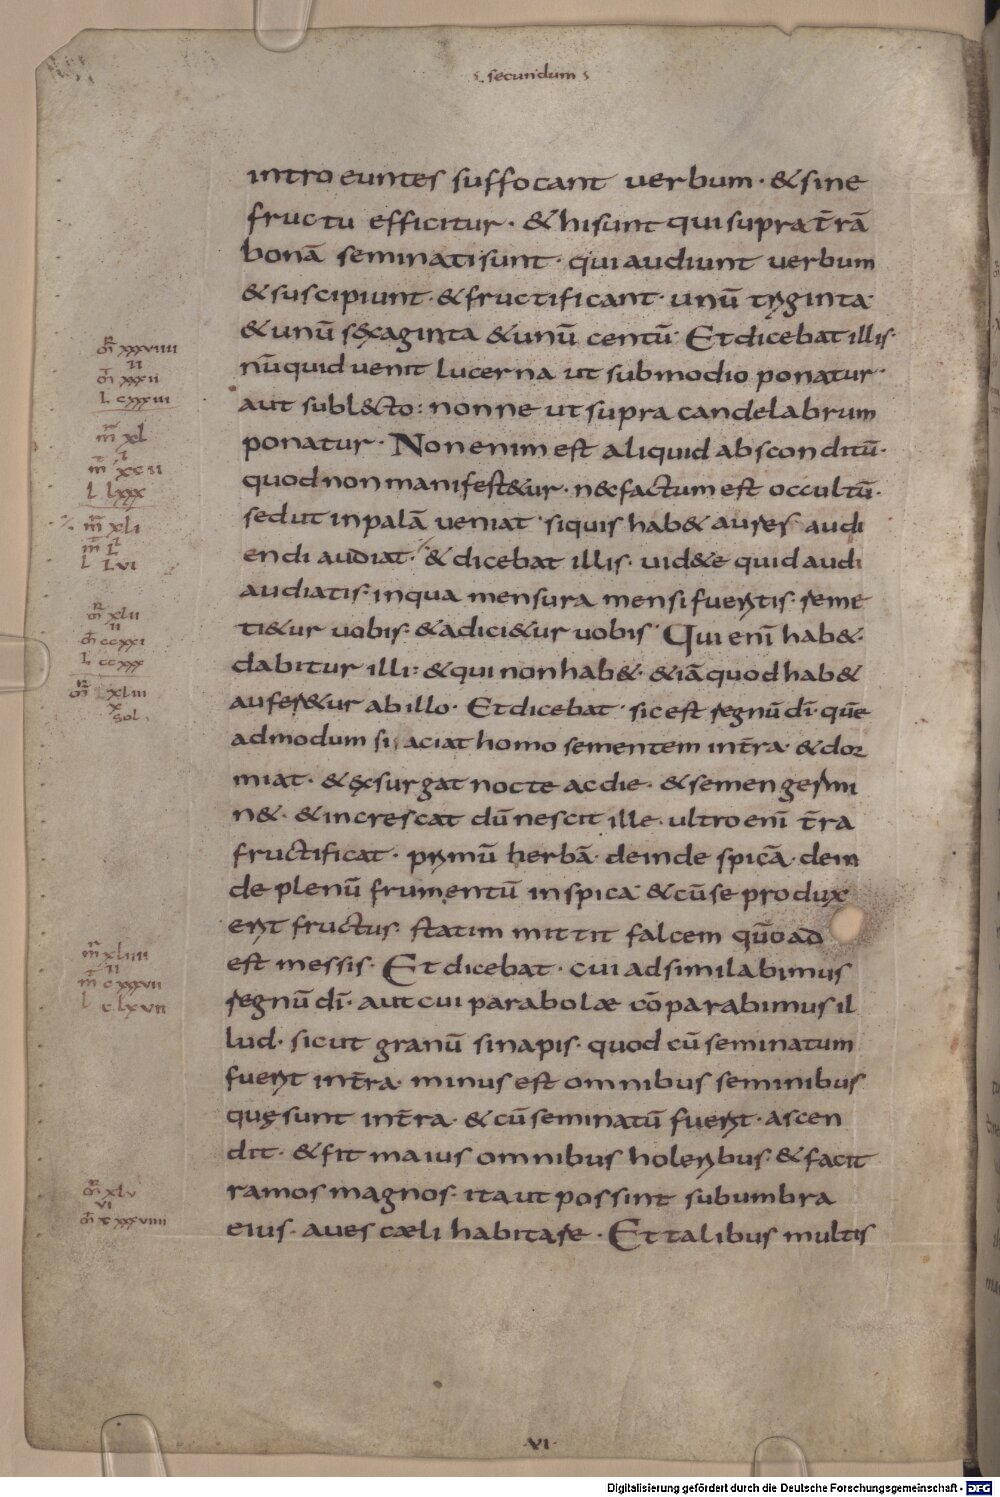 secundum
introeuntes suffocant uerbum · & sine
fructu efficitur · & hi sunt qui supra t̄rā
bonā seminati sunt · qui audiunt uerbum
& suscipiunt · & fructificant · unū triginta
& unū sexaginta & unū centū · Et dicebat illis ·
nūquid uenit lucerna ut sub modio ponatur ·
aut sub lecto : nonne ut supra candelabrum
ponatur · Non enim est aliquid absconditū ·
quod non manifest&ur · nec factum est occultū ·
sed ut in palā ueniat · siquis hab& aures audi
endi audiat · & dicebat illis · uid&e quid audi
audiatis · in qua mensura mensi fueritis · reme
ti&ur uobis · & adici&ur uobis · Qui enī hab& ·
dabitur illi : & qui non hab& · &iā quod hab&
aufer&ur ab illo · Et dicebat · sic est regnū dī · quē
admodum si iaciat homo sementem in t̄ra · & dor
miat · & exsurgat nocte ac die · & semen germi
n& · & increscat dū nescit ille · ultro enī t̄ra
fructificat · primū herbā · deinde spicā · dein
de plenū frumentū in spica · & cū se produx
erit fructus · statim mittit falcem qūo ad
est messis · Et dicebat · cui adsimilabimus
regnū dī · aut cui parabolæ cōparabimus il
lud · sicut granū sinapis · quod cū seminatum
fuerit in t̄ra · minus est omnibus seminibus
quę sunt in t̄ra · & cū seminatū fuerit · ascen
dit · & fit maius omnibus holeribus · & facit
ramos magnos · ita ut possint sub umbra
eius · aues cæli habitare · Et talibus multis
m̄ xxxviiii
ii
m̄ xxxii
L cxxiii
m̄ xl
m̄ xcii
L lxxx
m̄ xli
m̄ L
L Lvi
m̄ xlii
ii
m̄ ccxxi
L ccxxx
m̄ xliii
x
sol
m̄ xliiii
ii
m̄ cxxxvii
L clxvii
m̄ xlv
vi
· VI ·
Digitalisierung gefördert durch die Deutsche Forschungsgemeinschaft - DFG